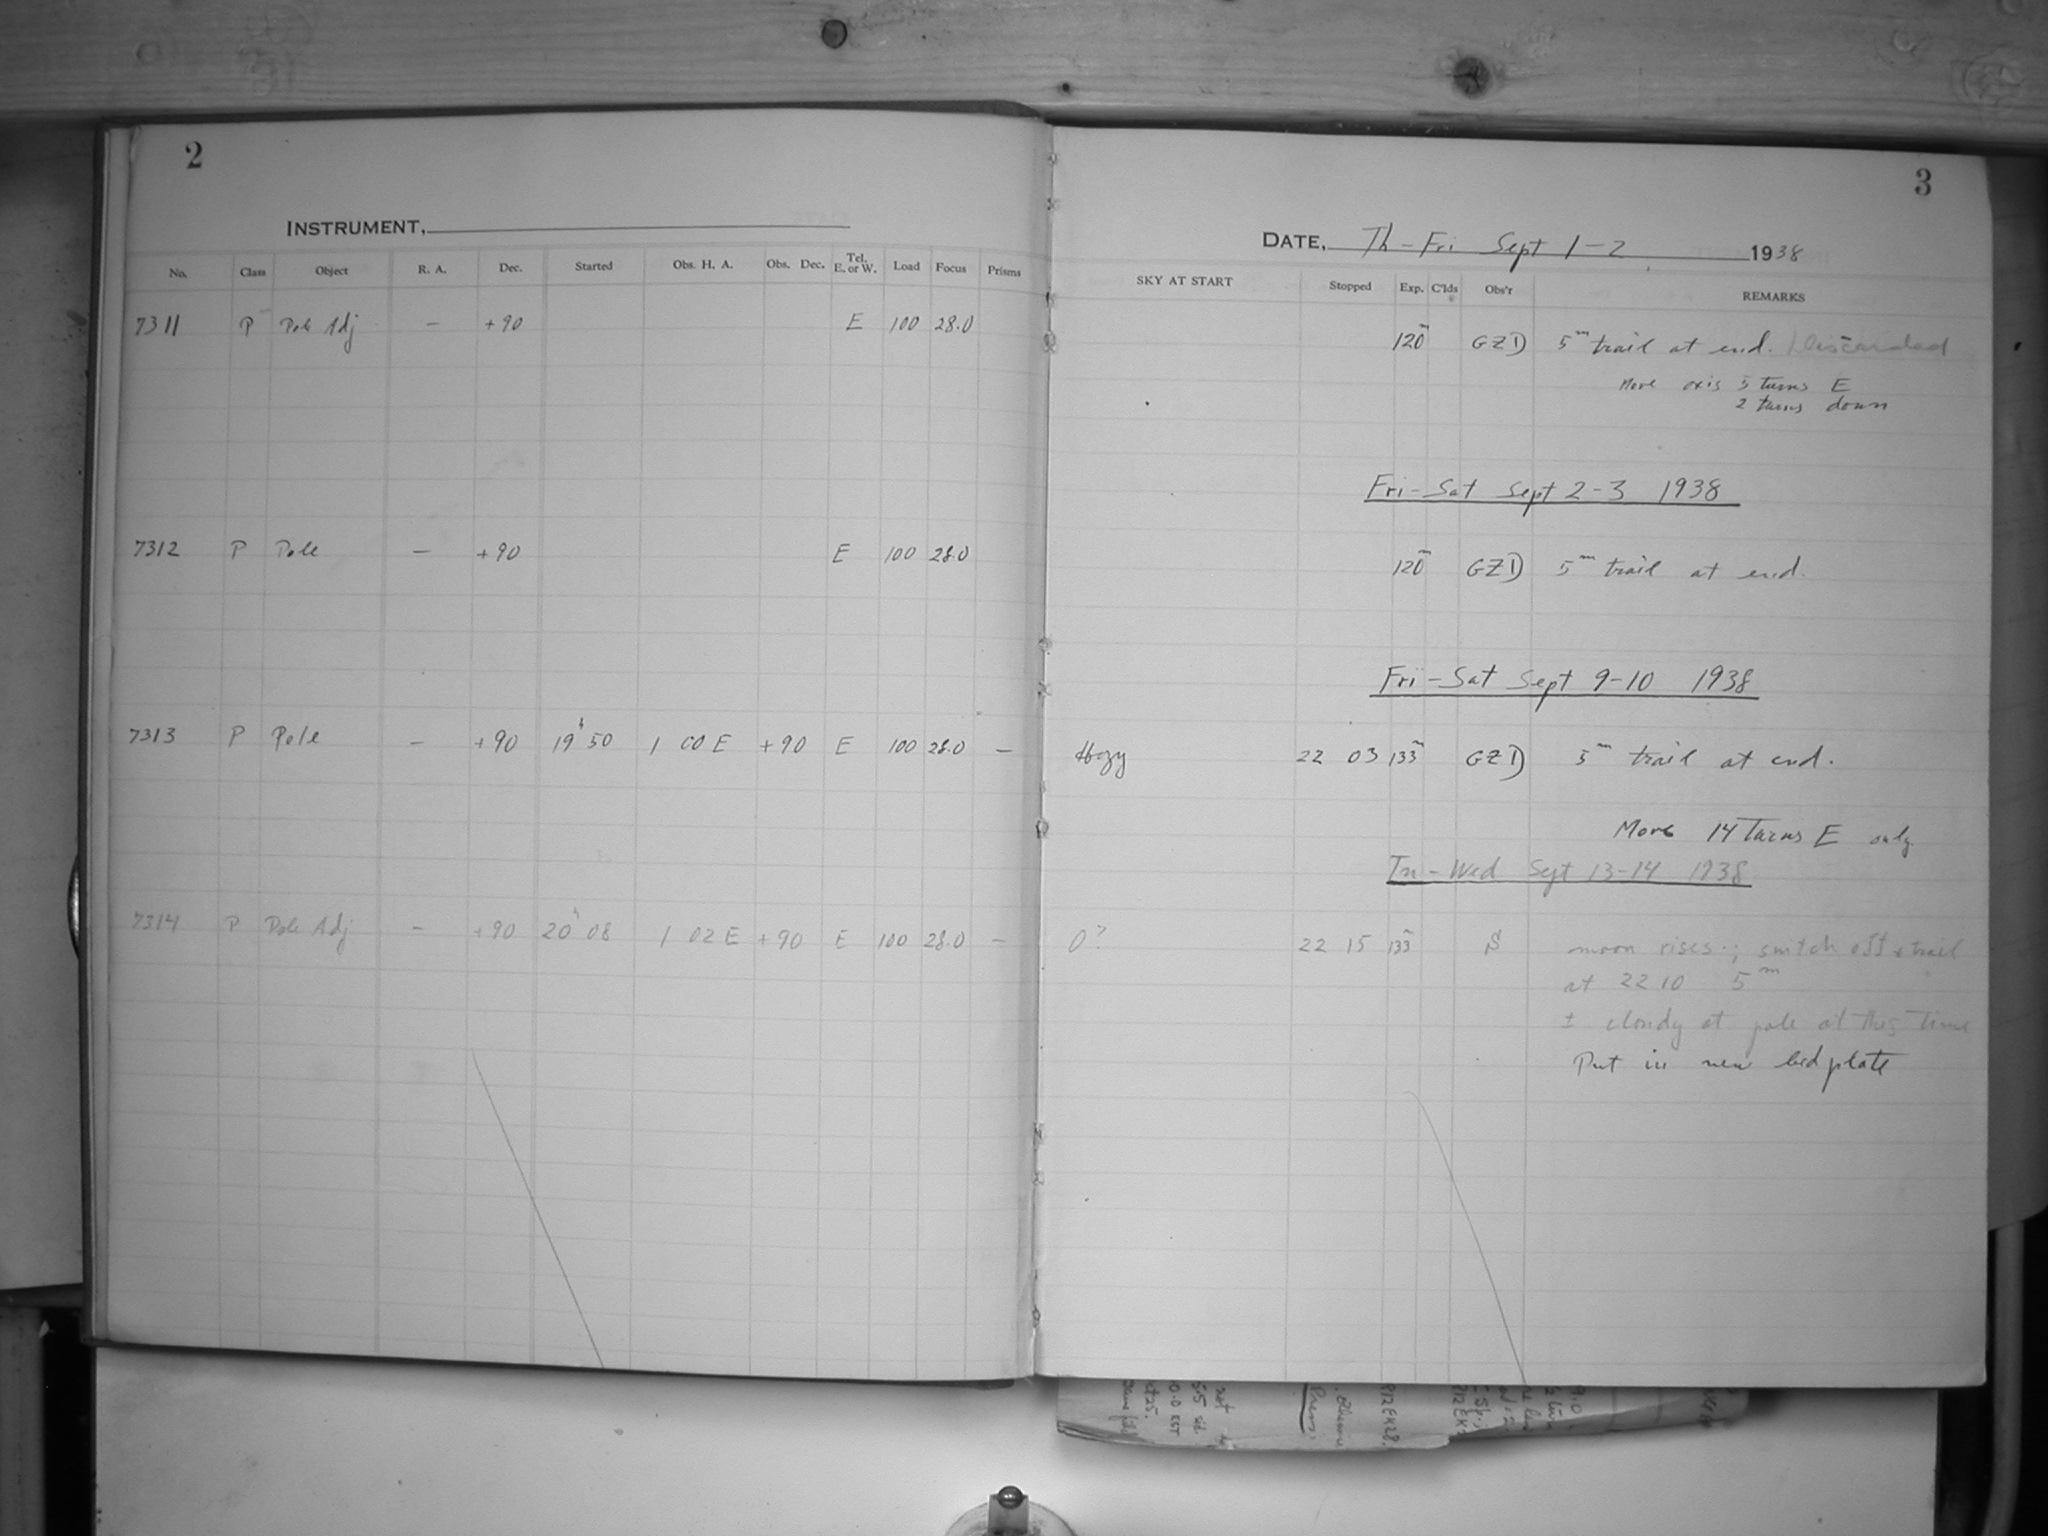 2
INSTRUMENT,
No. Class Object R. A. Dec. Started Obs. H. A. Obs. Dec. Tel. E. or W. Load Focus Prisms
7311 P Pole Adj — +90 E 100 28.0
7312 P Pole — +90 E 100 28.0
7313 P Pole — +90 19h 50 1 00 E +90 E 100 28.0 —
7314 P Pole Adj — +90 20h 08 1 02 E +90 E 100 28.0 —
3
DATE, Th - Fri Sept 1-2 1938
SKY AT START Stopped Exp. C'lds Obs'r REMARKS
120m GZD 5m trail at end. Discarded
Move axis 5 turns E
2 turns down
Fri-Sat Sept 2-3 1938
120m GZD 5m trail at end.
Fri-Sat Sept 9-10 1938
Hazy 22 03 133m GZD 5m trail at end.
Move 14 turns E only
Tu - Wed Sept 13-14 1938
0? 22 15 133m S moon rises; switch off & trail
at 22 10 5m
± cloudy at pole at this time
Put in new bedplate